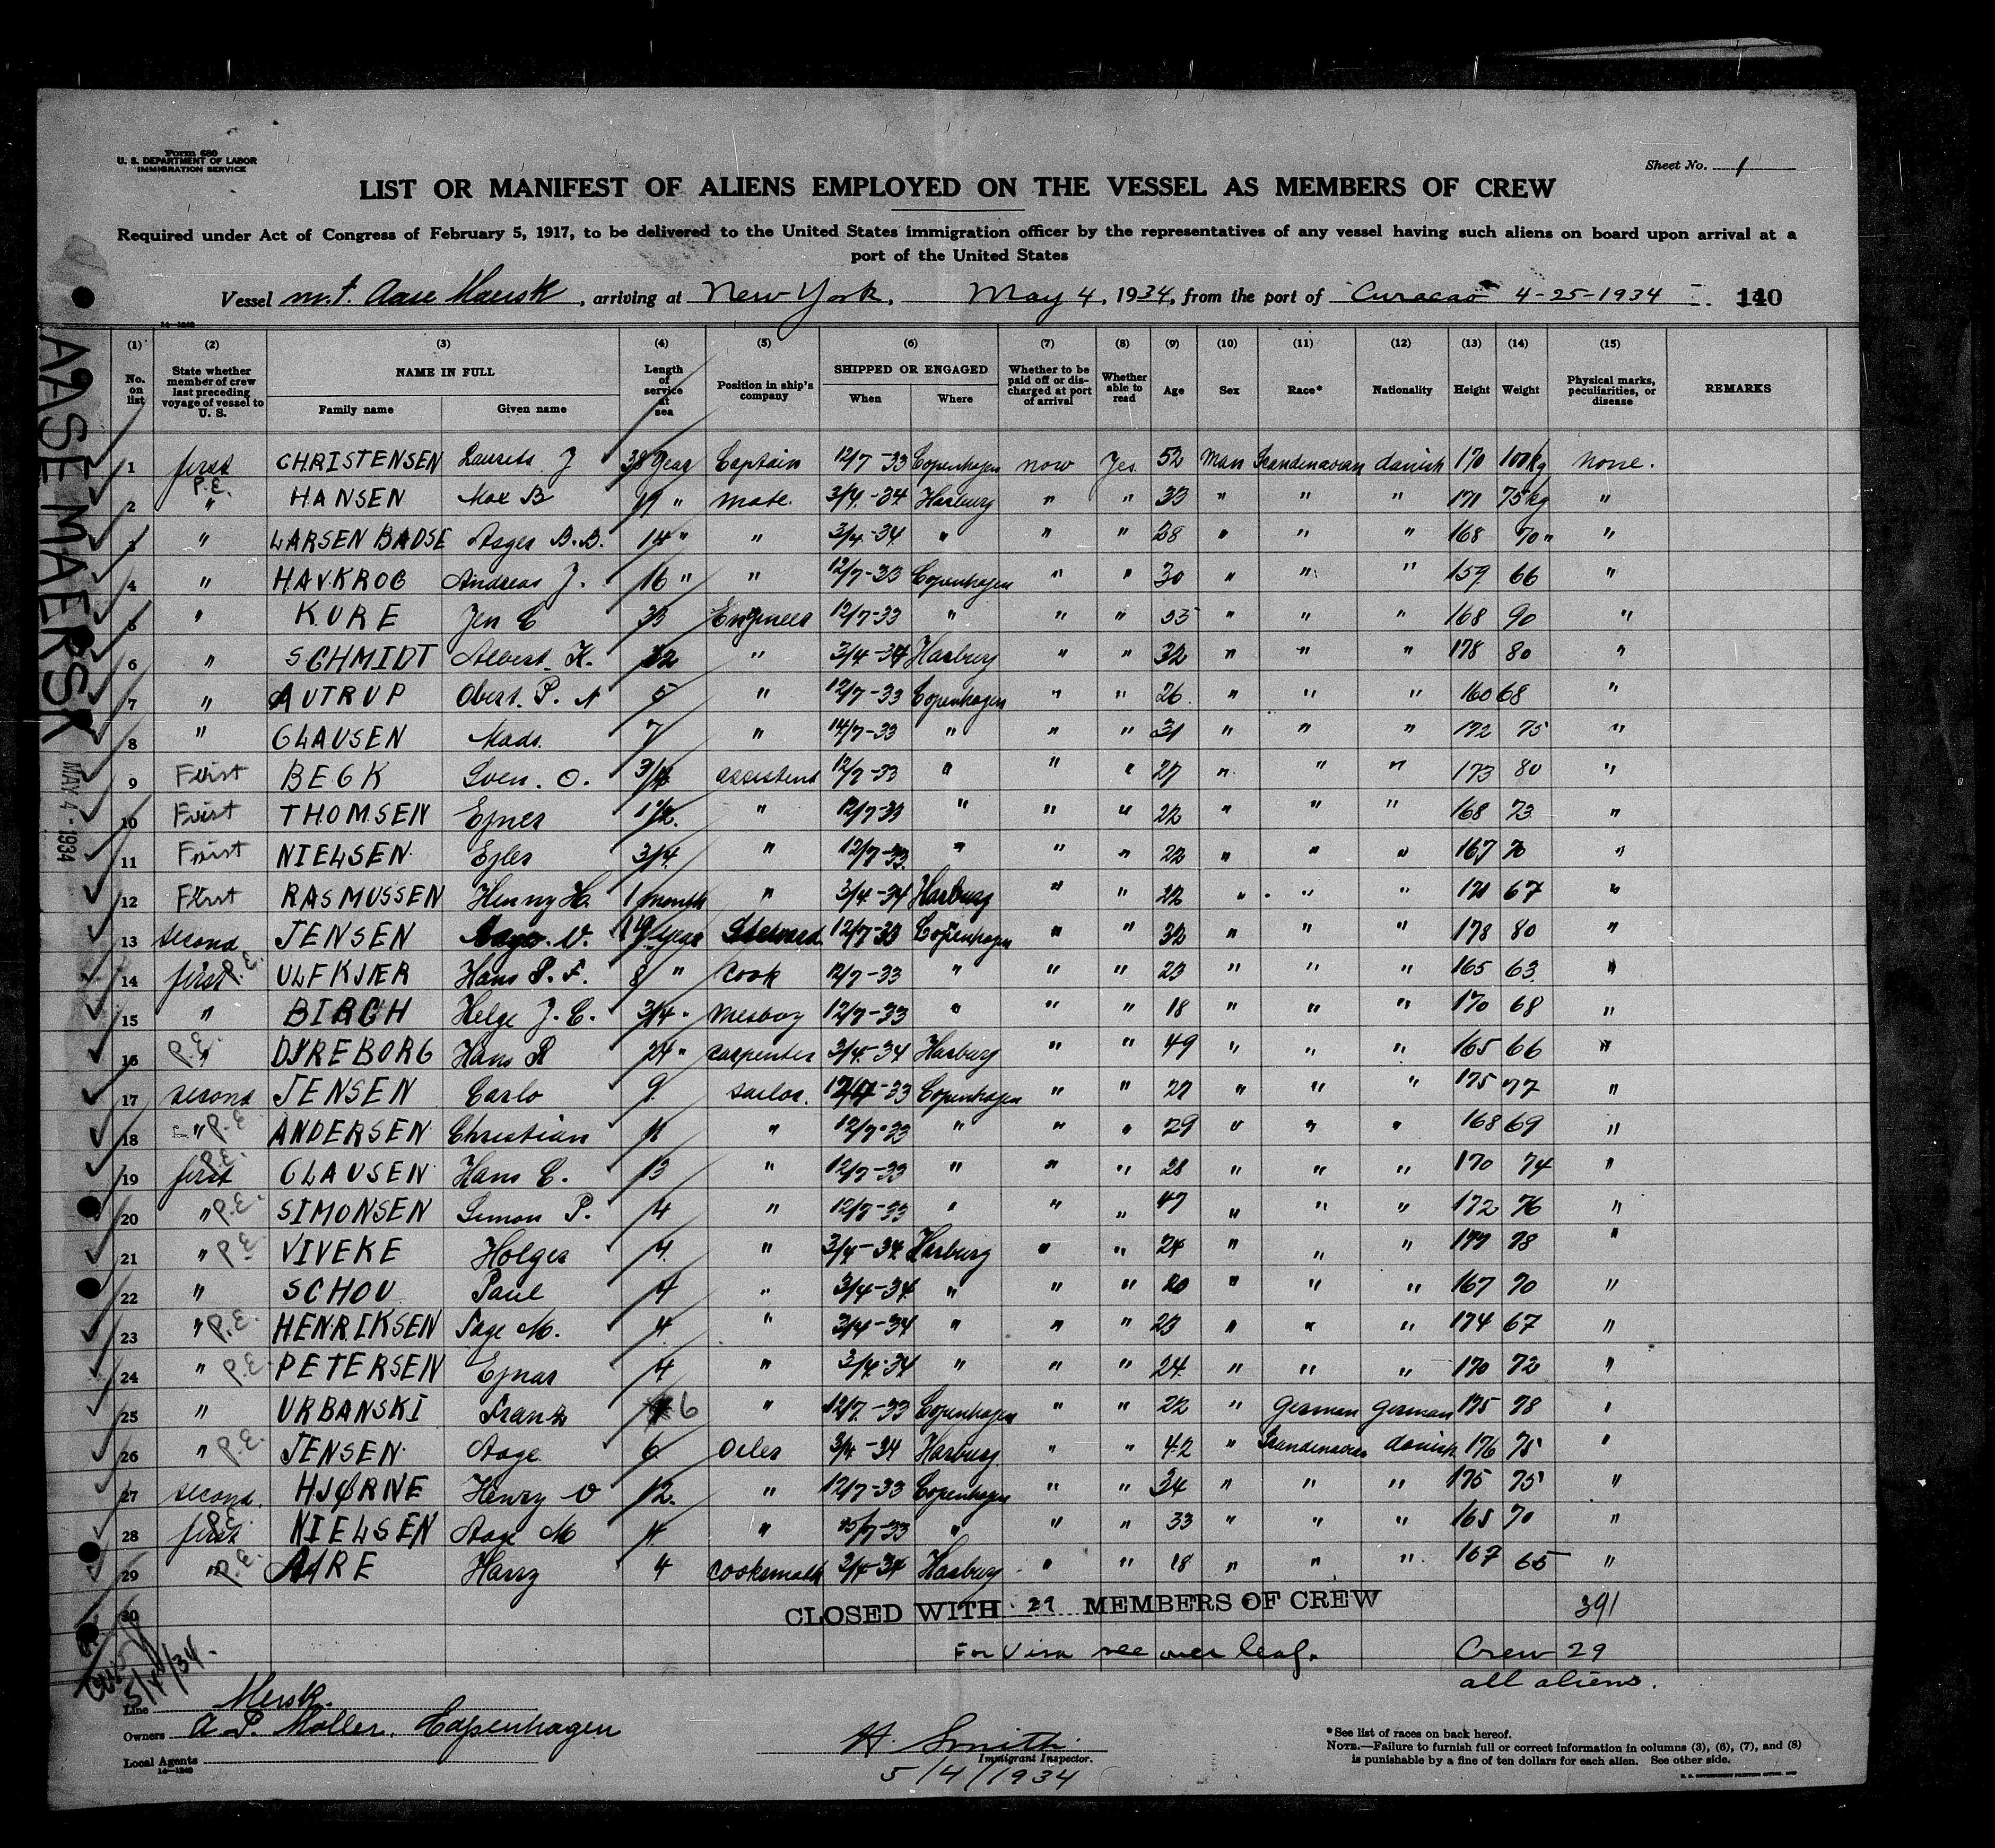 Form 680
U. S. DEPARTMENT OF LABOR
IMMIGRATION SERVICE
Sheet No. 1
LIST OR MANIFEST OF ALIENS EMPLOYED ON THE VESSEL AS MEMBERS OF CREW
Required under Act of Congress of February 5, 1917, to be delivered to the United States immigration officer by the representatives of any vessel having such aliens on board upon arrival at a
port of the United States
Vessel m.t. Aase Maersk, arriving at New York, May 4, 1934, from the port of Curacao 4-25-1934 140
14-1240
AASE MAERSK
MAY 4 - 1934
(1) (2) (3) (4) (5) (6) (7) (8) (9) (10) (11) (12) (13) (14) (15)
No. on list State whether member of crew last preceding voyage of vessel to U. S. NAME IN FULL Family name Given name Length of service at sea Position in ship's company SHIPPED OR ENGAGED When Where Whether to be paid off or discharged at port of arrival Whether able to read Age Sex Race* Nationality Height Weight Physical marks, peculiarities, or disease REMARKS
1 first CHRISTENSEN Laurits J 38 Year Captain 12/7-33 Copenhagen now Yes 52 Man Scandinavian danish 170 100kg none.
2 P.E. " HANSEN Max B 19 " mate. 3/4-34 Harburg " " 33 " " " 171 75kg "
3 " LARSEN BADSE Asger B.B. 14 " " 3/4-34 " " " 28 " " " 168 70 " "
4 " HAVKROG Andreas J. 16 " " 12/7-33 Copenhagen " " 30 " " " 159 66 "
5 " KURE Jen C 33 Engineer 12/7-33 " " " 55 " " " 168 90 "
6 " SCHMIDT Albert K. 12 " 3/4-34 Harburg " " 32 " " " 178 80 "
7 " AUTRUP Obert P. A 5 " 12/7-33 Copenhagen " " 26 " " " 160 68 "
8 " CLAUSEN Mads. 7 " 14/7-33 " " " 31 " " " 172 75 "
9 First BECK Sven. O. 3/4 assistent 12/7-33 " " " 27 " " " 173 80 "
10 First THOMSEN Ejner 1 1/2 " 12/7-33 " " " 22 " " " 168 73 "
11 First NIELSEN Ejler 3/4 " 12/7-33 " " " 22 " " " 167 70 "
12 First RASMUSSEN Henny H. 1 month " 3/4-34 Harburg " " 22 " " " 171 67 "
13 second JENSEN Aage V. 19 year Steward 12/7-33 Copenhagen " " 32 " " " 178 80 "
14 first P.E. ULFKJÆR Hans P. F. 8 " Cook 12/7-33 " " " 23 " " " 165 63 "
15 " BIRCH Helge J. C. 3/4 " Mesboy 12/7-33 " " " 18 " " " 170 68 "
16 P.E. " DYREBORG Hans R 24 " carpenter 3/4-34 Harburg " " 49 " " " 165 66 "
17 second JENSEN Carlo 9 sailor. 12/7-33 Copenhagen " " 27 " " " 175 77 "
18 " P.E. ANDERSEN Christian 11 " 12/7-33 " " " 29 " " " 168 69 "
19 first P.E. CLAUSEN Hans C. 13 " 12/7-33 " " " 28 " " " 170 74 "
20 " P.E. SIMONSEN Simon P. 4 " 12/7-33 " " " 47 " " " 172 76 "
21 " P.E. VIVEKE Holger 4 " 3/4-34 Harburg " " 24 " " " 177 78 "
22 " SCHOU Paul 4 " 3/4-34 " " " 20 " " " 167 70 "
23 " P.E. HENRIKSEN Page M. 4 " 3/4-34 " " " 23 " " " 174 67 "
24 " P.E. PETERSEN Ejnar 4 " 3/4-34 " " " 24 " " " 170 72 "
25 " URBANSKI Franz 6 " 12/7-33 Copenhagen " " 22 " German German 175 78 "
26 " P.E. JENSEN Aage 6 Oiler 3/4-34 Harburg " " 42 " Scandinavian danish 176 75 "
27 second. HJØRNE Henry V 12 " 12/7-33 Copenhagen " " 34 " " " 175 75 "
28 P.E. first NIELSEN Aage M 4 " 15/7-33 " " " 33 " " " 165 70 "
29 " P.E. AARE Harry 4 cooksmath 3/4-34 Harburg " " 18 " " " 167 65 "
30 CLOSED WITH 29 MEMBERS OF CREW 391
For Visa see over leaf. Crew 29
all aliens.
5/4/34.
Line Mersk.
Owners A. P. Moller, Copenhagen
Local Agents
14-1240
H. Smith
Immigrant Inspector.
5/4/1934
*See list of races on back hereof.
NOTE.—Failure to furnish full or correct information in columns (3), (6), (7), and (8)
is punishable by a fine of ten dollars for each alien. See other side.
U. S. GOVERNMENT PRINTING OFFICE